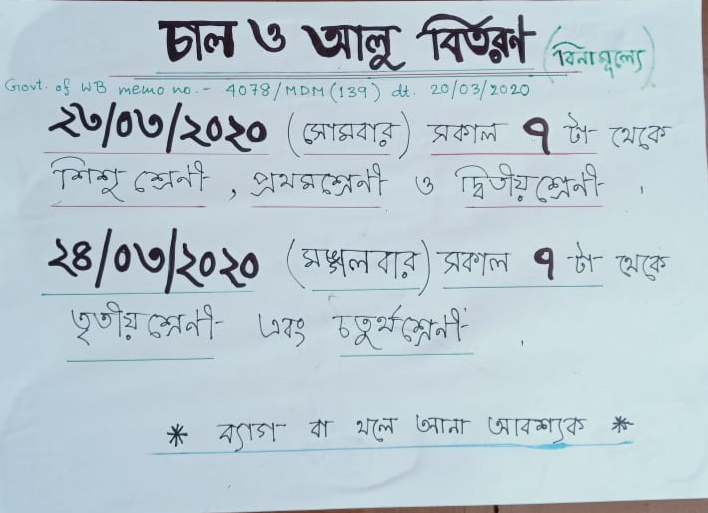 চাল ও আলু বিতরণ (বিনামূল্যে)
Govt. of WB memo no. - 4078/MDM(139) dt. 20/03/2020
২৩/০৩/২০২০ (সোমবার) সকাল ৭ টা থেকে
শিশু শ্রেণী, প্রথমশ্রেণী ও দ্বিতীয়শ্রেণী.
২৪/০৩/২০২০ (মঙ্গলবার) সকাল ৭ টা থেকে
তৃতীয়শ্রেণী এবং চতুর্থশ্রেণী.
* ব্যাগ বা থলে আনা আবশ্যক *